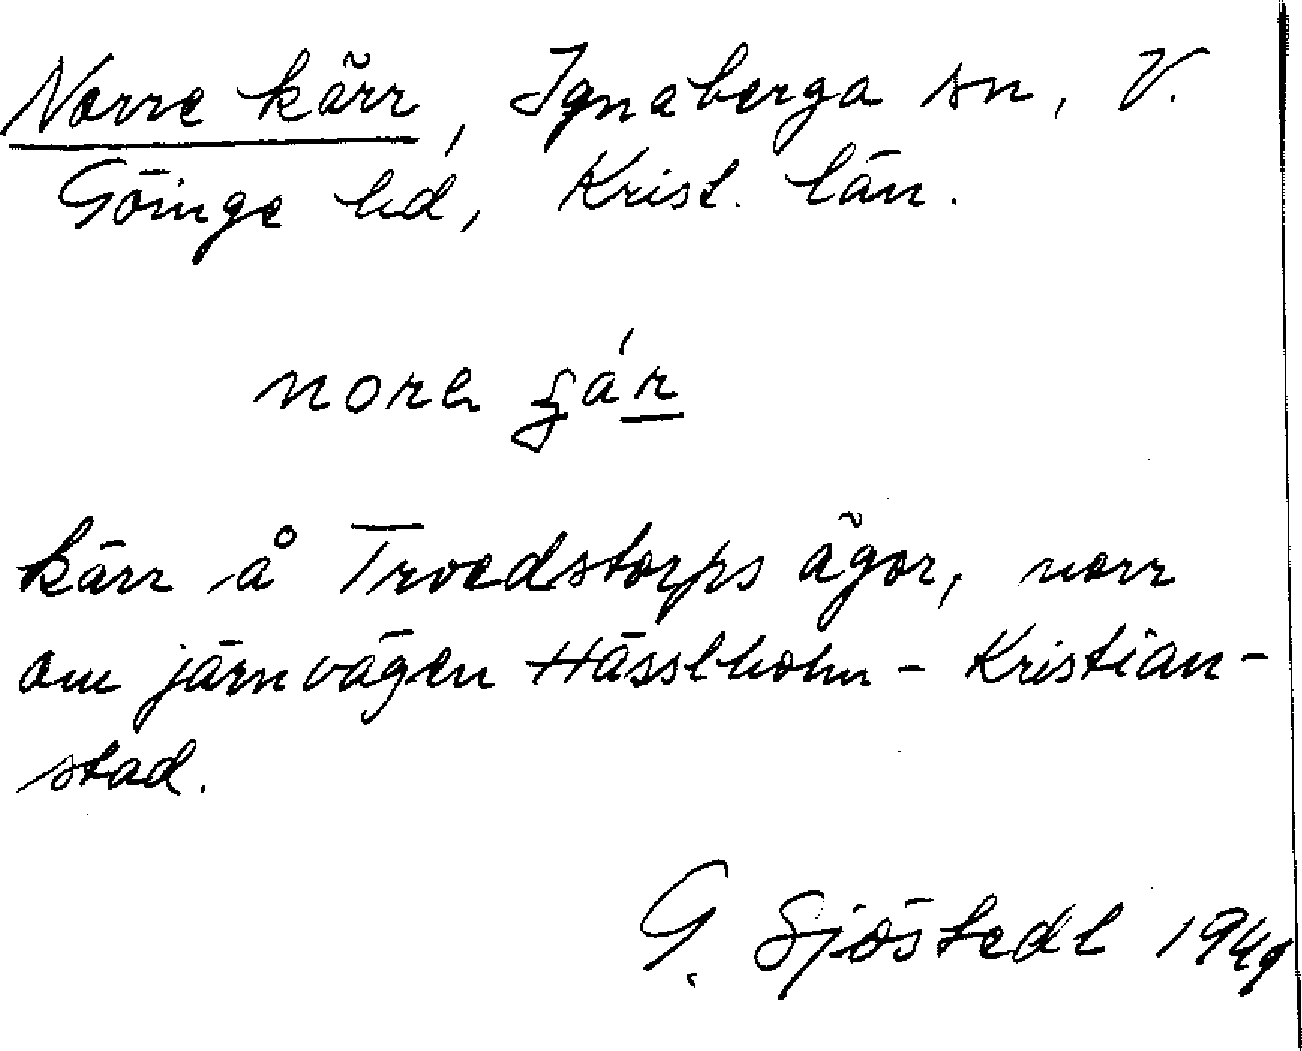 Norre kärr, Ignaberga sn, V.
Göinge hd, Krist. län.
kärr å Troedstorps ägor, norr
om järnvägen Hässleholm - Kristian-
stad.
G. Sjöstedt 1949